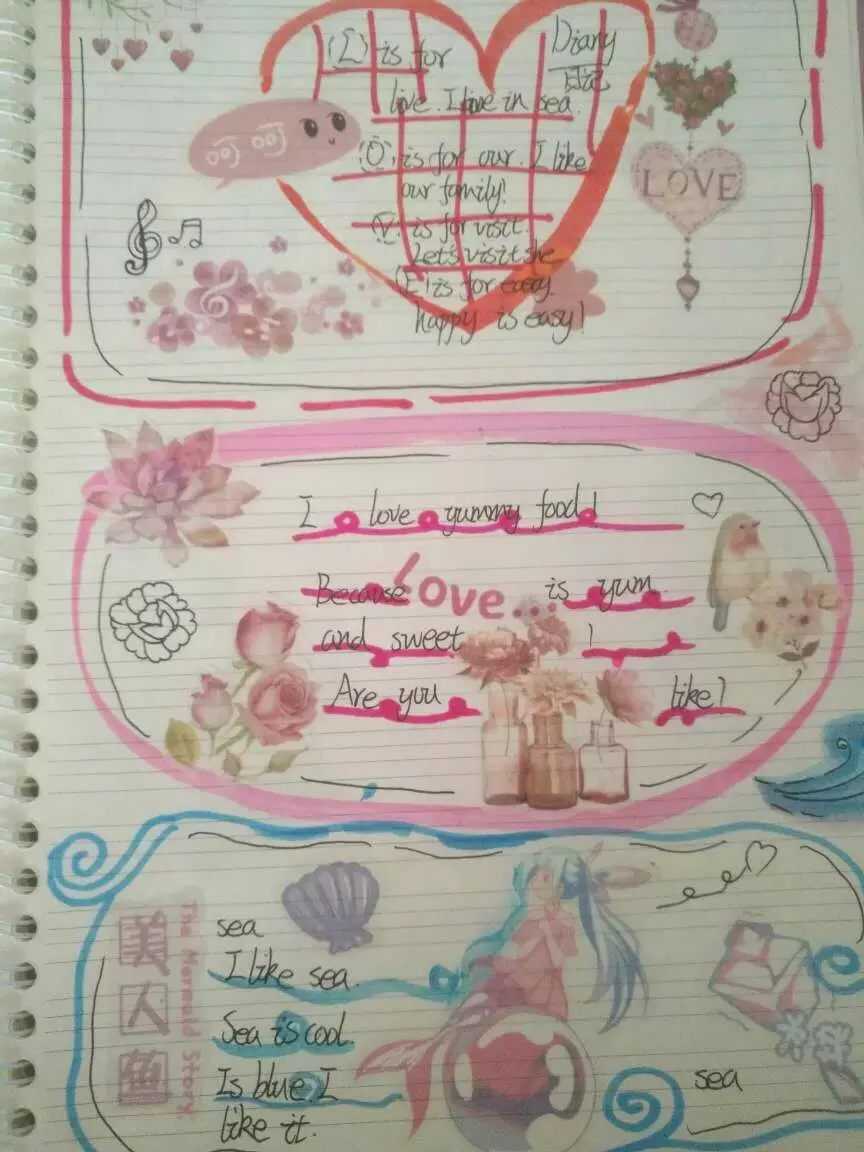 (L) is for
Diary
日记
live. I live in sea.
(O) is for our. I like
our family!
LOVE
(V) is for visit.
Let's visit she
(E) is for every
happy is easy!
I love yummy food!
Because Love... is yum
and sweet !
Are you like?
sea
I like sea.
Sea is cool.
Is blue. I
like it.
美人鱼
The Mermaid Story
sea